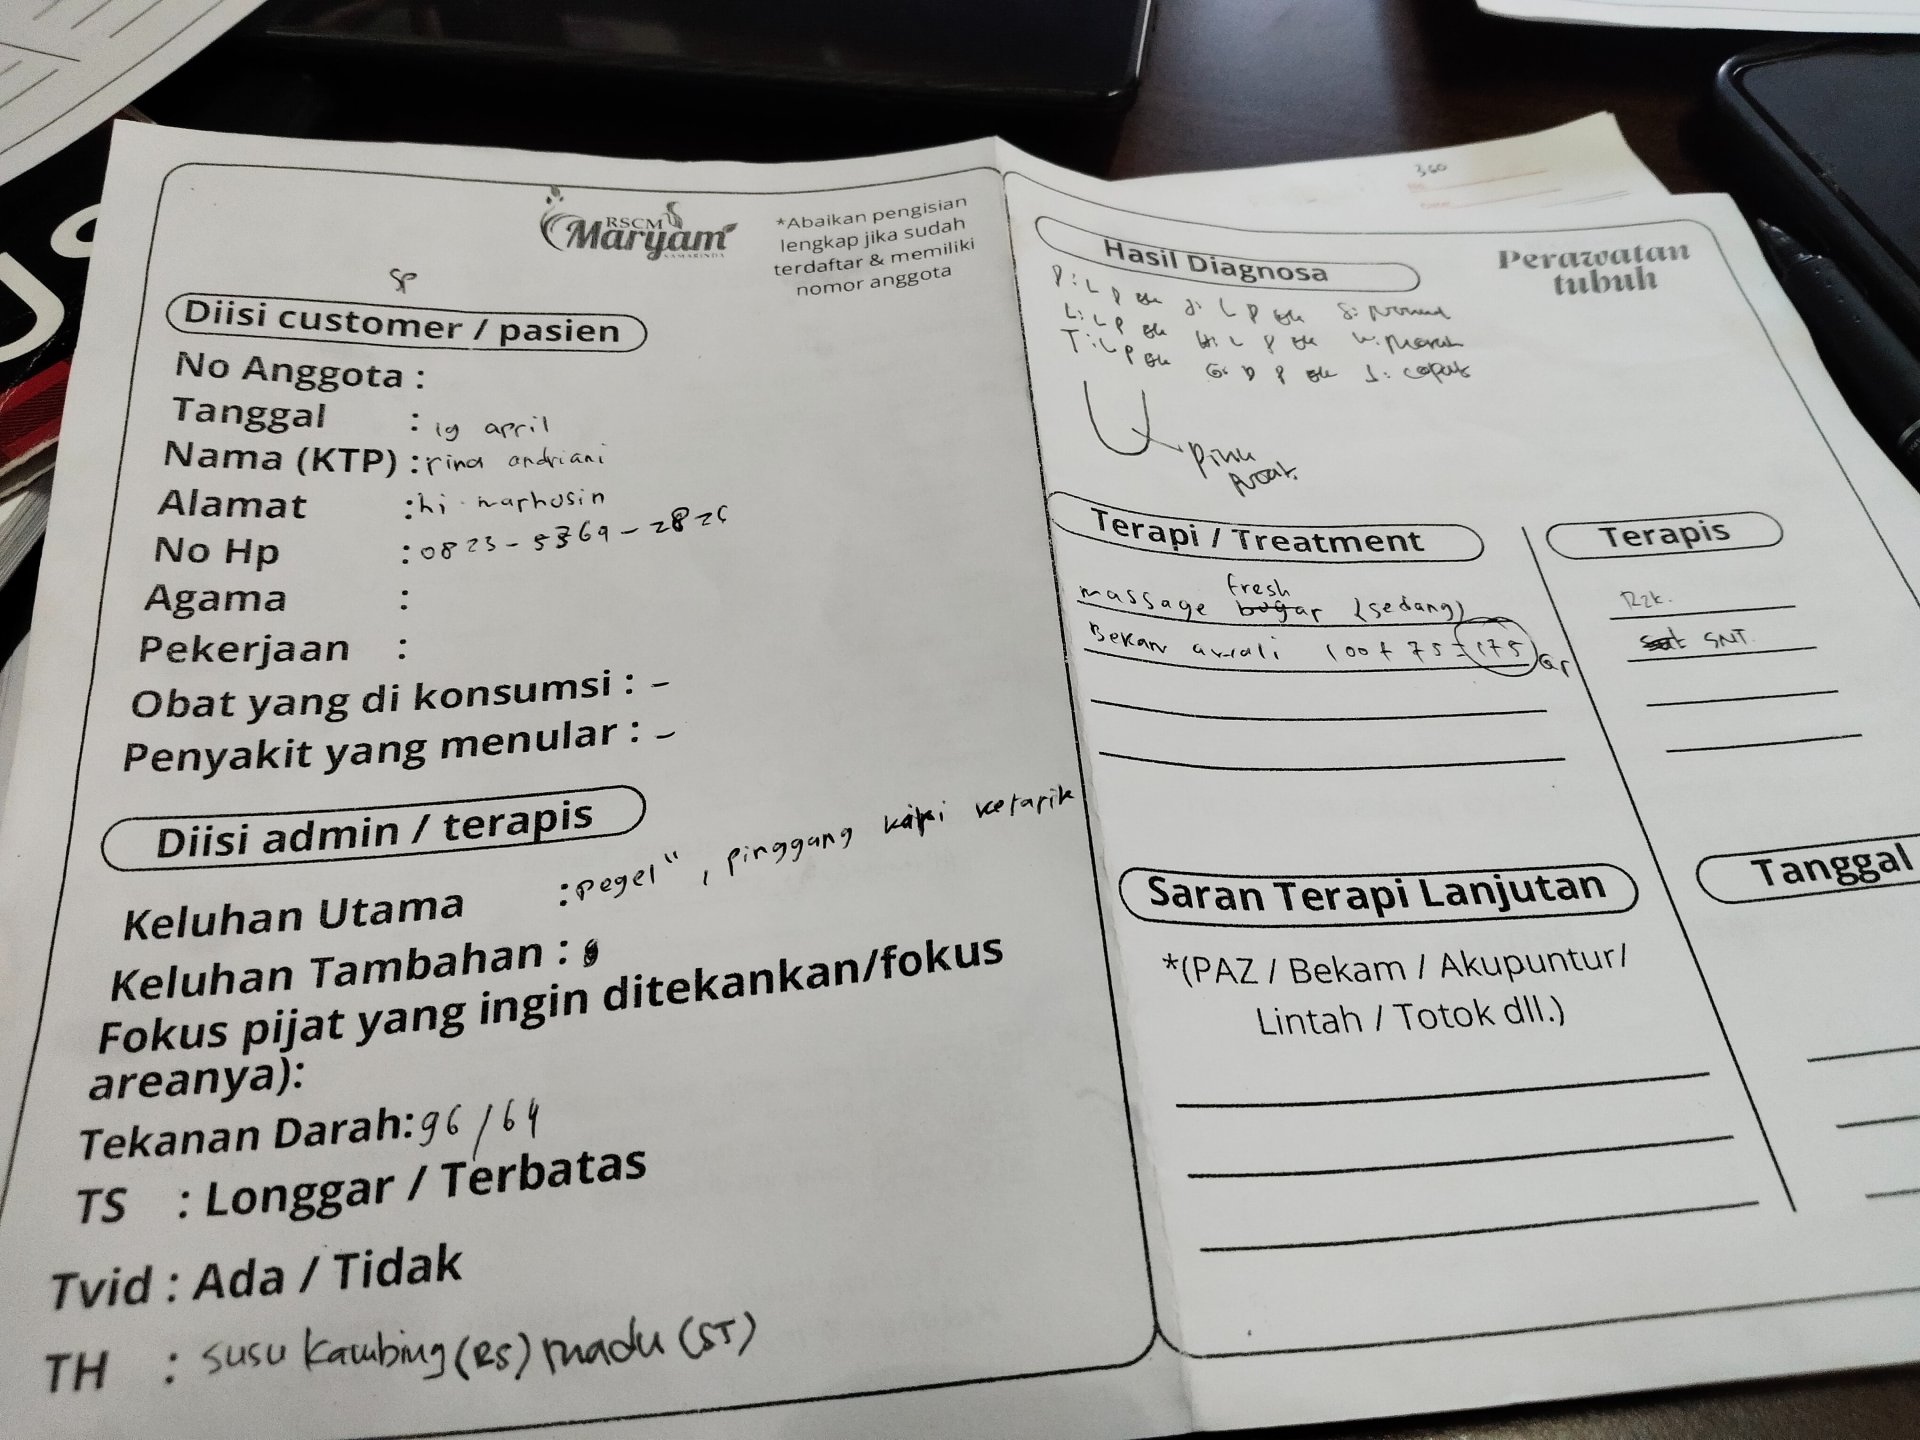 RSCM
Maryam
SAMARINDA
*Abaikan pengisian
lengkap jika sudah
terdaftar & memiliki
nomor anggota
SP
Diisi customer / pasien
No Anggota :
Tanggal : 19 april
Nama (KTP) : rina andriani
Alamat : hi marhusin
No Hp : 0823-5369-282
Agama :
Pekerjaan :
Obat yang di konsumsi : -
Penyakit yang menular : -
Diisi admin / terapis
Keluhan Utama : pegel", pinggang ketarik
Keluhan Tambahan :
Fokus pijat yang ingin ditekankan/fokus
areanya):
Tekanan Darah: 96/64
TS : Longgar / Terbatas
Tvid : Ada / Tidak
TH : susu kambing (RS) madu (ST)
360
Perawatan
tubuh
Hasil Diagnosa
Terapi / Treatment
fresh
massage bugar (sedang)
Bekam 100 + 75 = 175
Terapis
Rzk.
SNT.
Saran Terapi Lanjutan
*(PAZ / Bekam / Akupuntur/
Lintah / Totok dll.)
Tanggal